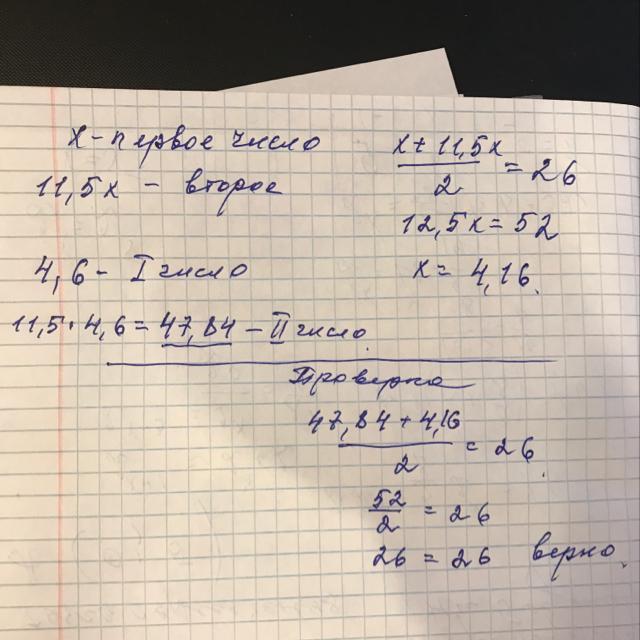 x - первое число
11,5x - второе
4,6 - I число
11,5 · 4,6 = 47,84 - II число.
x + 11,5x / 2 = 26
12,5x = 52
x = 4,16.
Проверка
47,84 + 4,16 / 2 = 26.
52 / 2 = 26
26 = 26 верно.